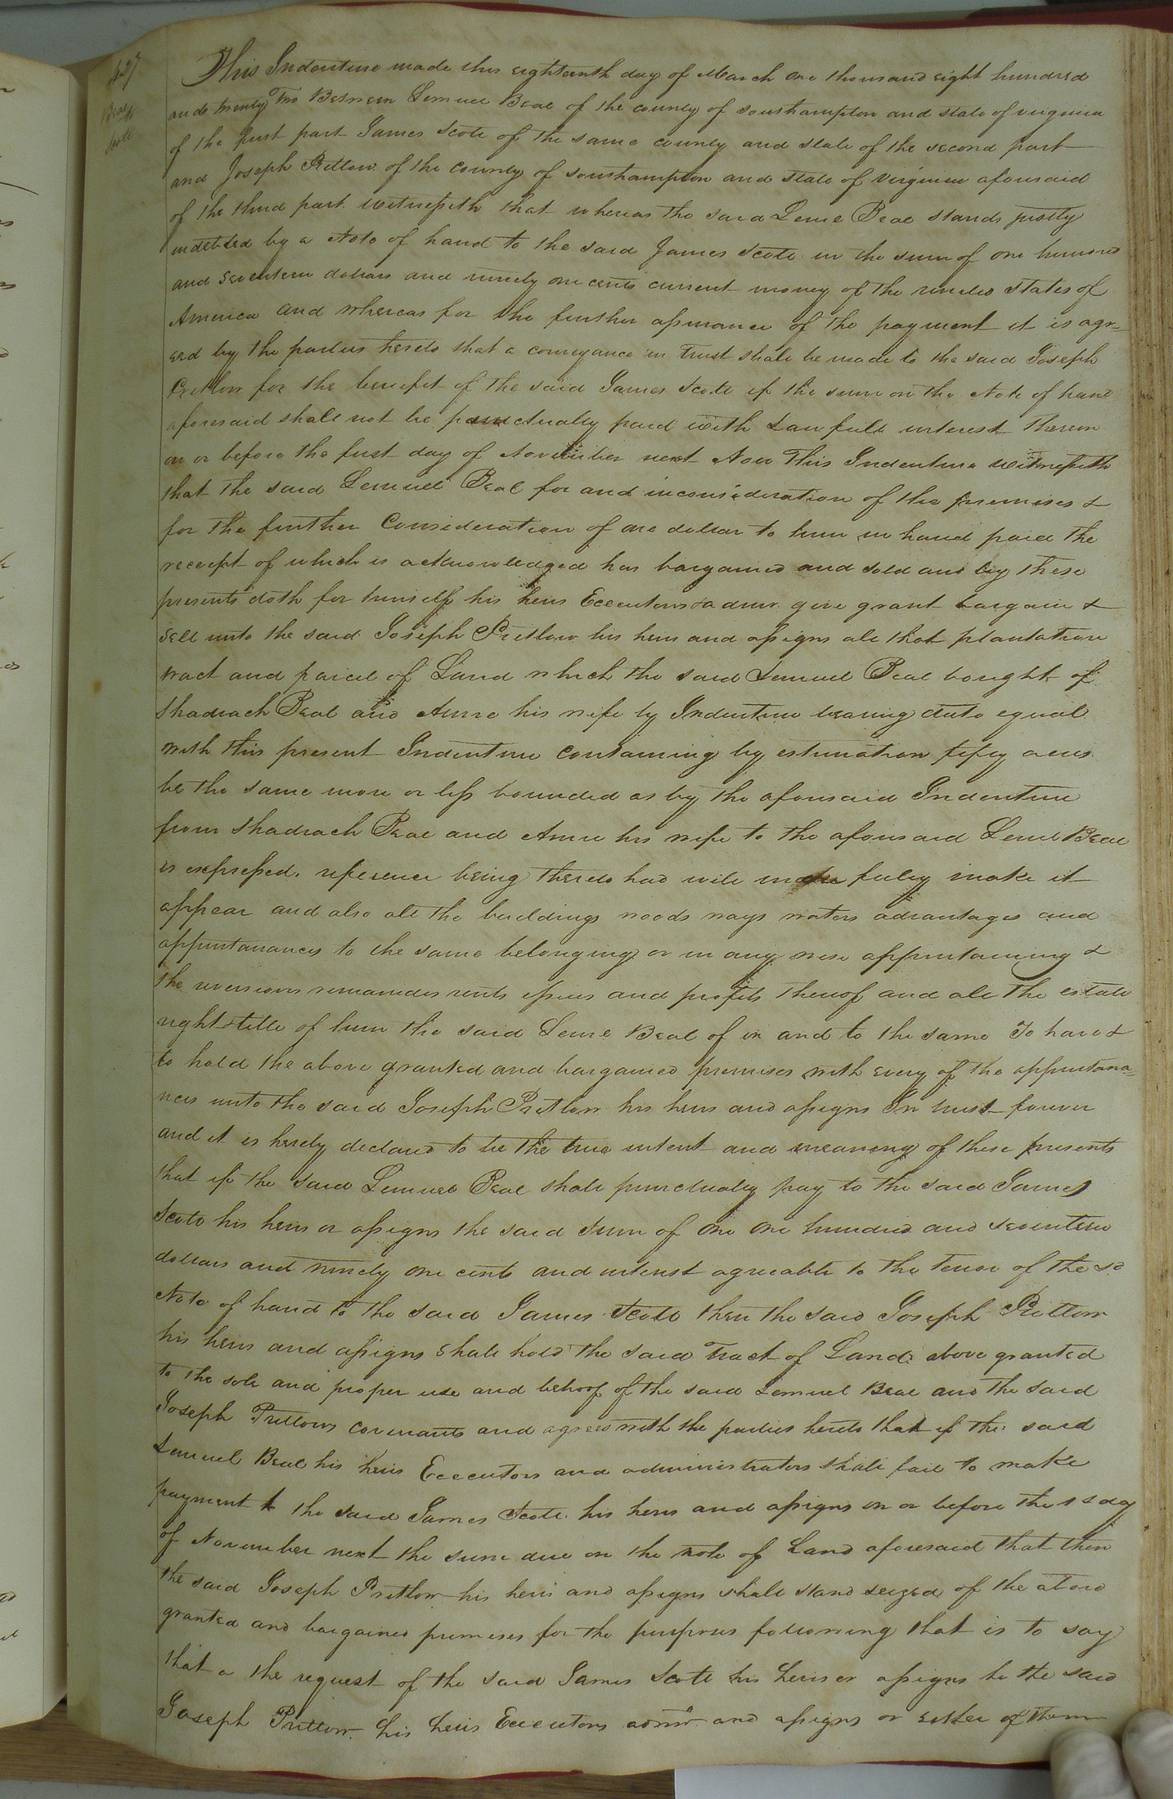 427
Beal
to
Scott
This Indenture made this eighteenth day of March one thousand eight hundred
and twenty Two Between Lemuel Beal of the county of Southampton and state of virginia
of the first part James Scott of the same county and state of the second part
and Joseph Pretlow of the County of Southampton and state of Virginia aforesaid
of the third part Witnesseth that whereas the said Leml Beal stands justly
indebted by a Note of hand to the said James Scott in the sum of one hundred
and seventeen dollars and ninety one cents current money of the united States of
America and whereas for the further assurance of the payment it is agre-
eed by the parties hereto that a conveyance in trust shall be made to the said Joseph
Pretlow for the benefit of the said James Scott if the sum on the Note of hand
aforesaid shall not be punctually paid with Lawfull interest thereon
on or before the first day of November next Now This Indenture witnesseth
that the said Lemuel Beal for and inconsideration of the premises &
for the further Consideration of one dollar to him in hand paid the
receipt of which is acknowledged has bargained and sold and by these
presents doth for himself his heirs Executors & admr. give grant bargain &
sell unto the said Joseph Pretlow his heirs and assigns all that plantation
tract and parcel of Land which the said Lemuel Beal bought of
Shadrach Beal and Anne his wife by Indenture bearing date equal
with this present Indenture containing by estimation fifty acres
be the same more or less bounded as by the aforesaid Indenture
from Shadrach Beal and Anne his wife to the aforesaid Leml Beal
is expressed. reference being thereto had will more fuley make it
appear and also all the buildings woods ways waters advantages and
appurtanances to the same belonging or in any wise appurtaining &
the reversions remainders rents issues and profits thereof and all the estate
right & title of him the said Leml Beal of in and to the same To have &
to hold the above granted and bargained premises with every of the appurtana-
nces unto the said Joseph Pretlow his heirs and assigns In trust forever
and it is hereby declared to be the true intent and meaning of these presents
that if the said Lemuel Beal shall punctually pay to the said James
Scott his heirs or assigns the said sum of One One hundred and seventeen
dollars and ninety one cents and interest agreable to the tenor of the sd
Note of hand to the said James Scott then the said Joseph Pretlow
his heirs and assigns shall hold the said Tract of Land above granted
to the sole and proper use and behoof of the said Lemuel Beal and the said
Joseph Pretlow covenants and agrees with the parties hereto that if the said
Lemuel Beal his heirs Executors and administrators shall fail to make
payment to the said James Scott his heirs and assigns on or before the 1s day
of November next the sum due on the note of Land aforesaid that then
the said Joseph Pretlow his heirs and assigns shall stand seized of the above
granted and bargained premises for the purposes following that is to say
that a the request of the said James Scott his heirs or assigns he the said
Joseph Pretlow his heirs Executors admr and assigns or either of them